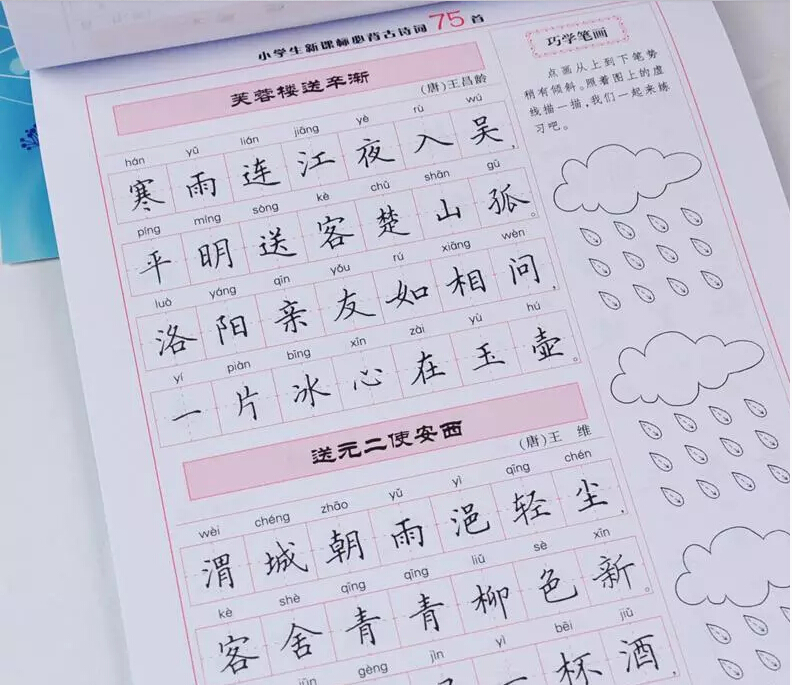 小学生新课标必背古诗词75首
芙蓉楼送辛渐
(唐)王昌龄
hán yǔ lián jiāng yè rù wú
寒雨连江夜入吴,
píng míng sòng kè chǔ shān gū
平明送客楚山孤。
luò yáng qīn yǒu rú xiāng wèn
洛阳亲友如相问,
yí piàn bīng xīn zài yù hú
一片冰心在玉壶。
送元二使安西
(唐)王 维
wèi chéng zhāo yǔ yì qīng chén
渭城朝雨浥轻尘,
kè shè qīng qīng liǔ sè xīn
客舍青青柳色新。
jūn gèng jìn yì bēi jiǔ
一杯酒,
巧学笔画
点画从上到下笔势
稍有倾斜。照着图上的虚
线描一描,我们一起来练
习吧。